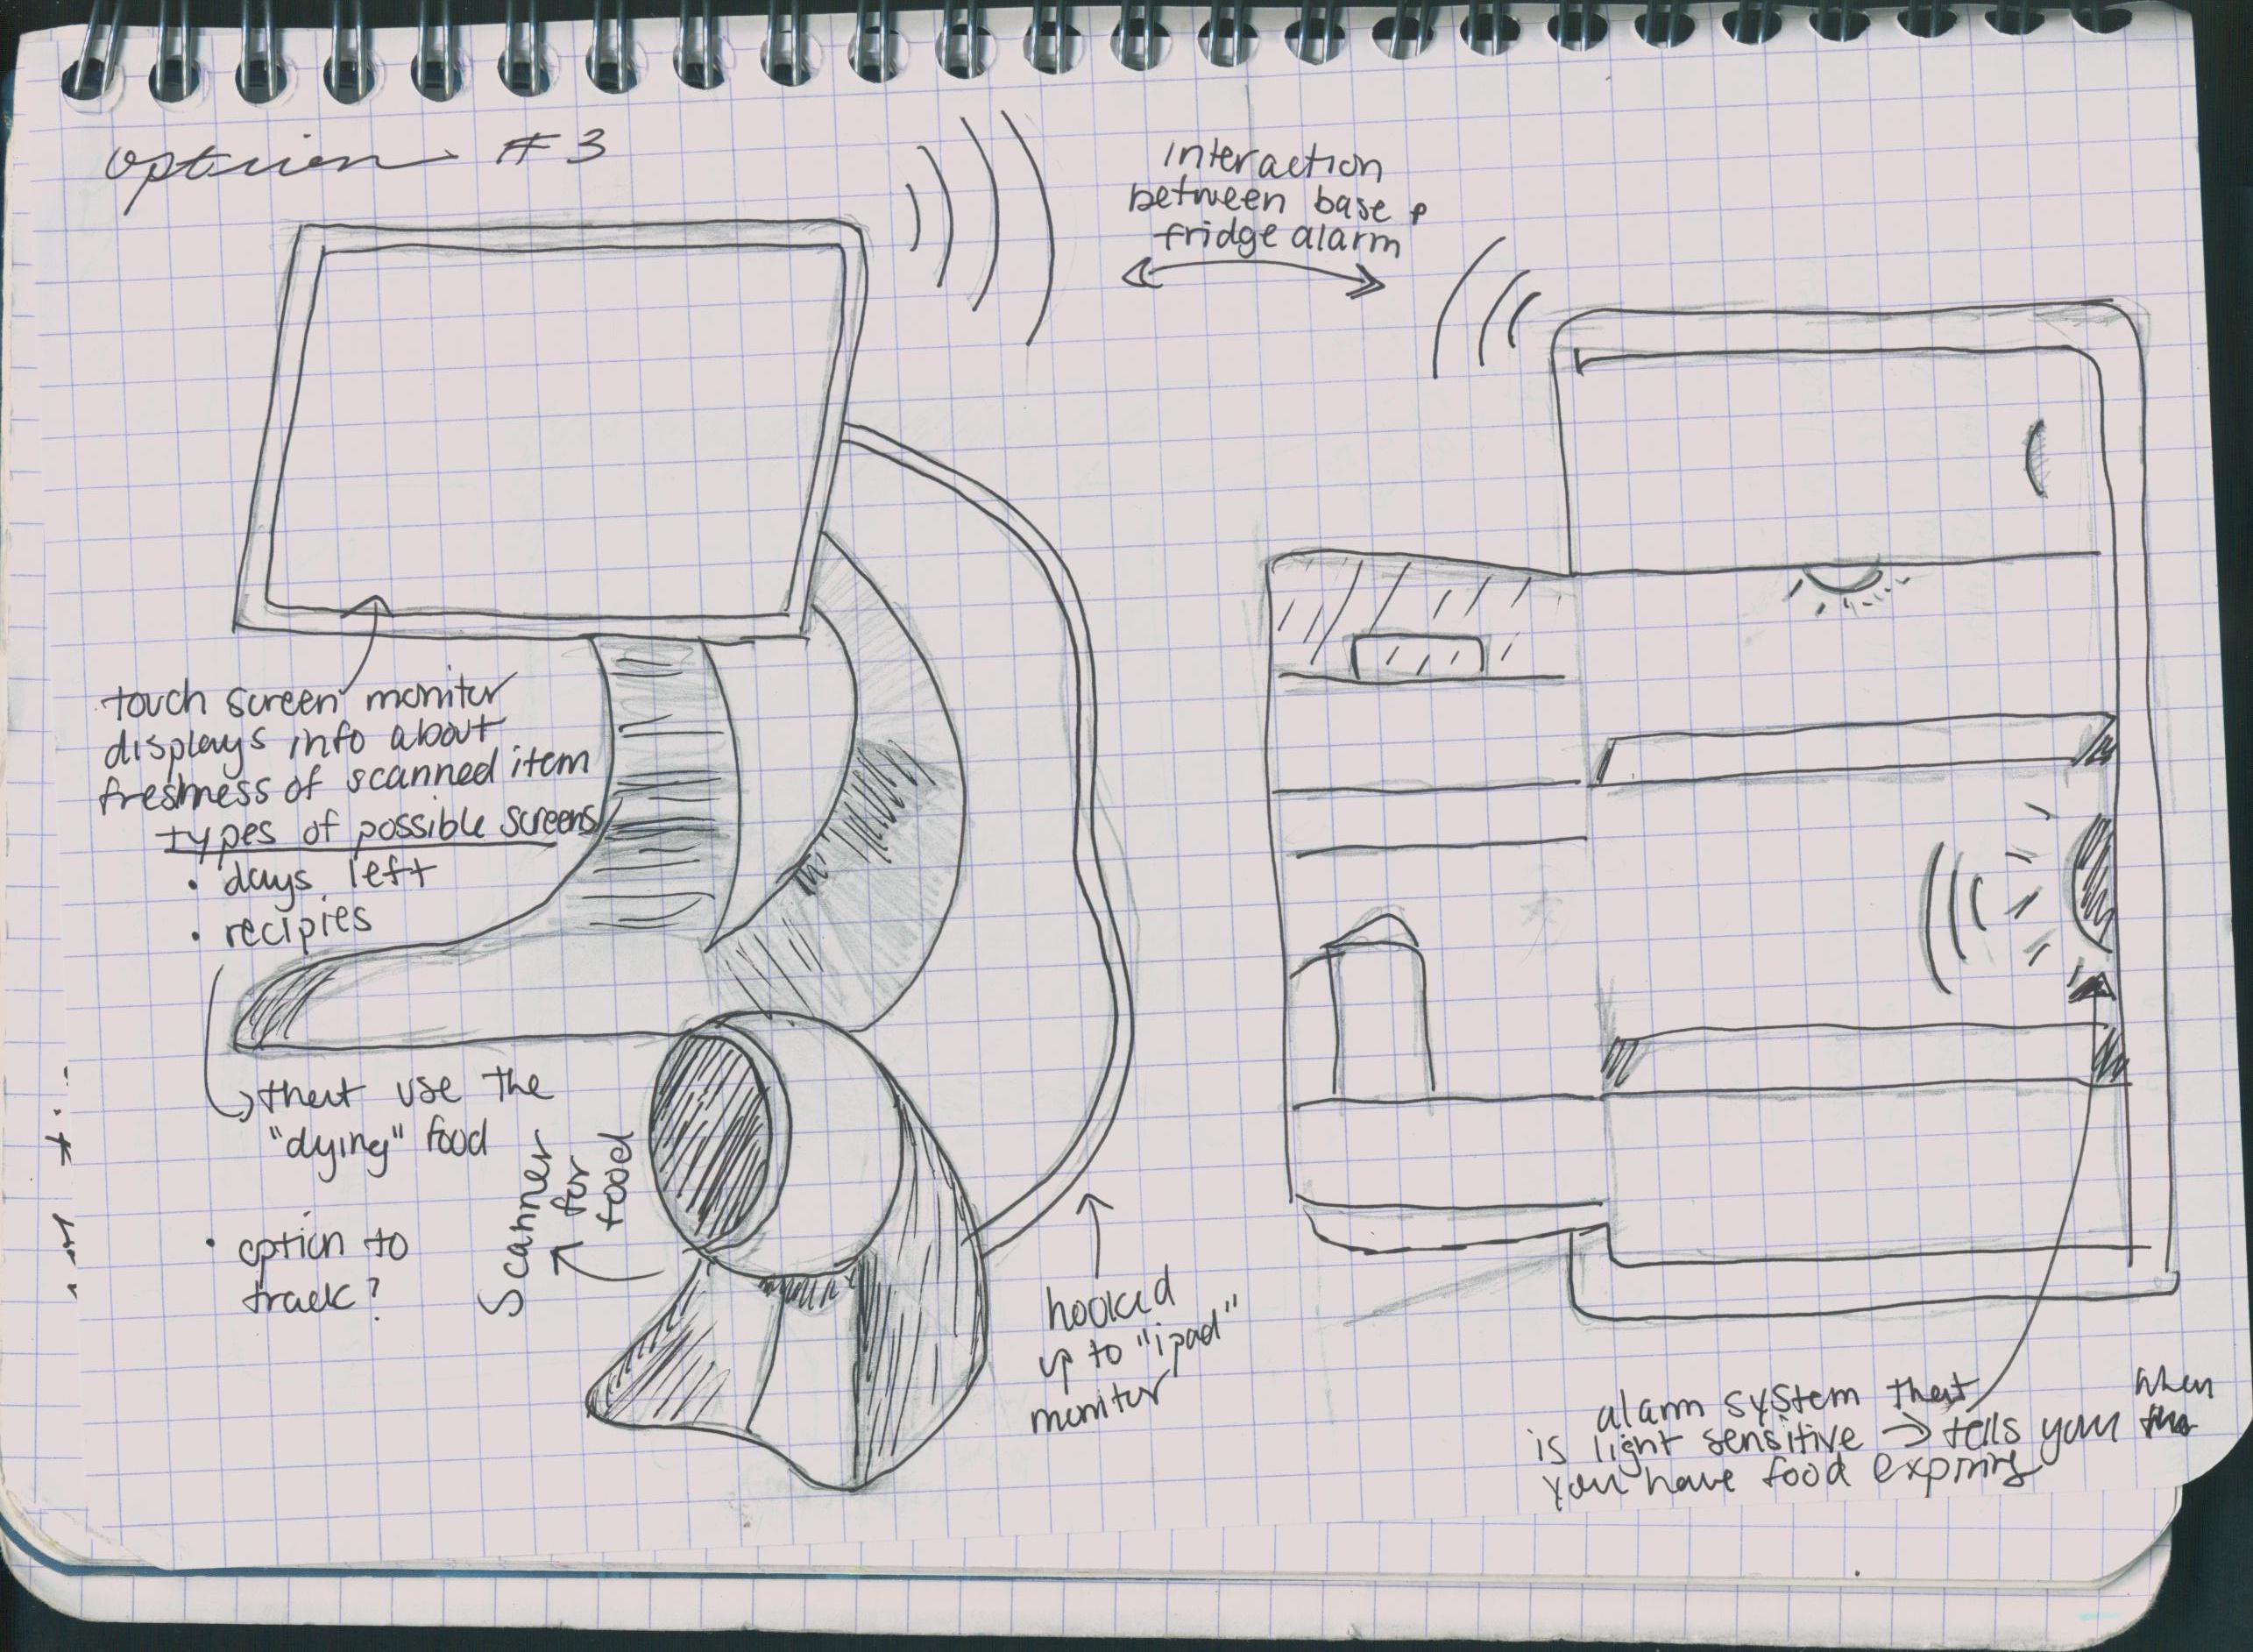 option #3
interaction
between base &
fridge alarm
touch screen monitor
displays info about
freshness of scanned item
types of possible screens
• days left
• recipies
that use the
"dying" food
• option to
track?
Scanner
for
food
hooked
up to "ipad"
monitor
alarm system that
is light sensitive → tells you when
you have food expiring